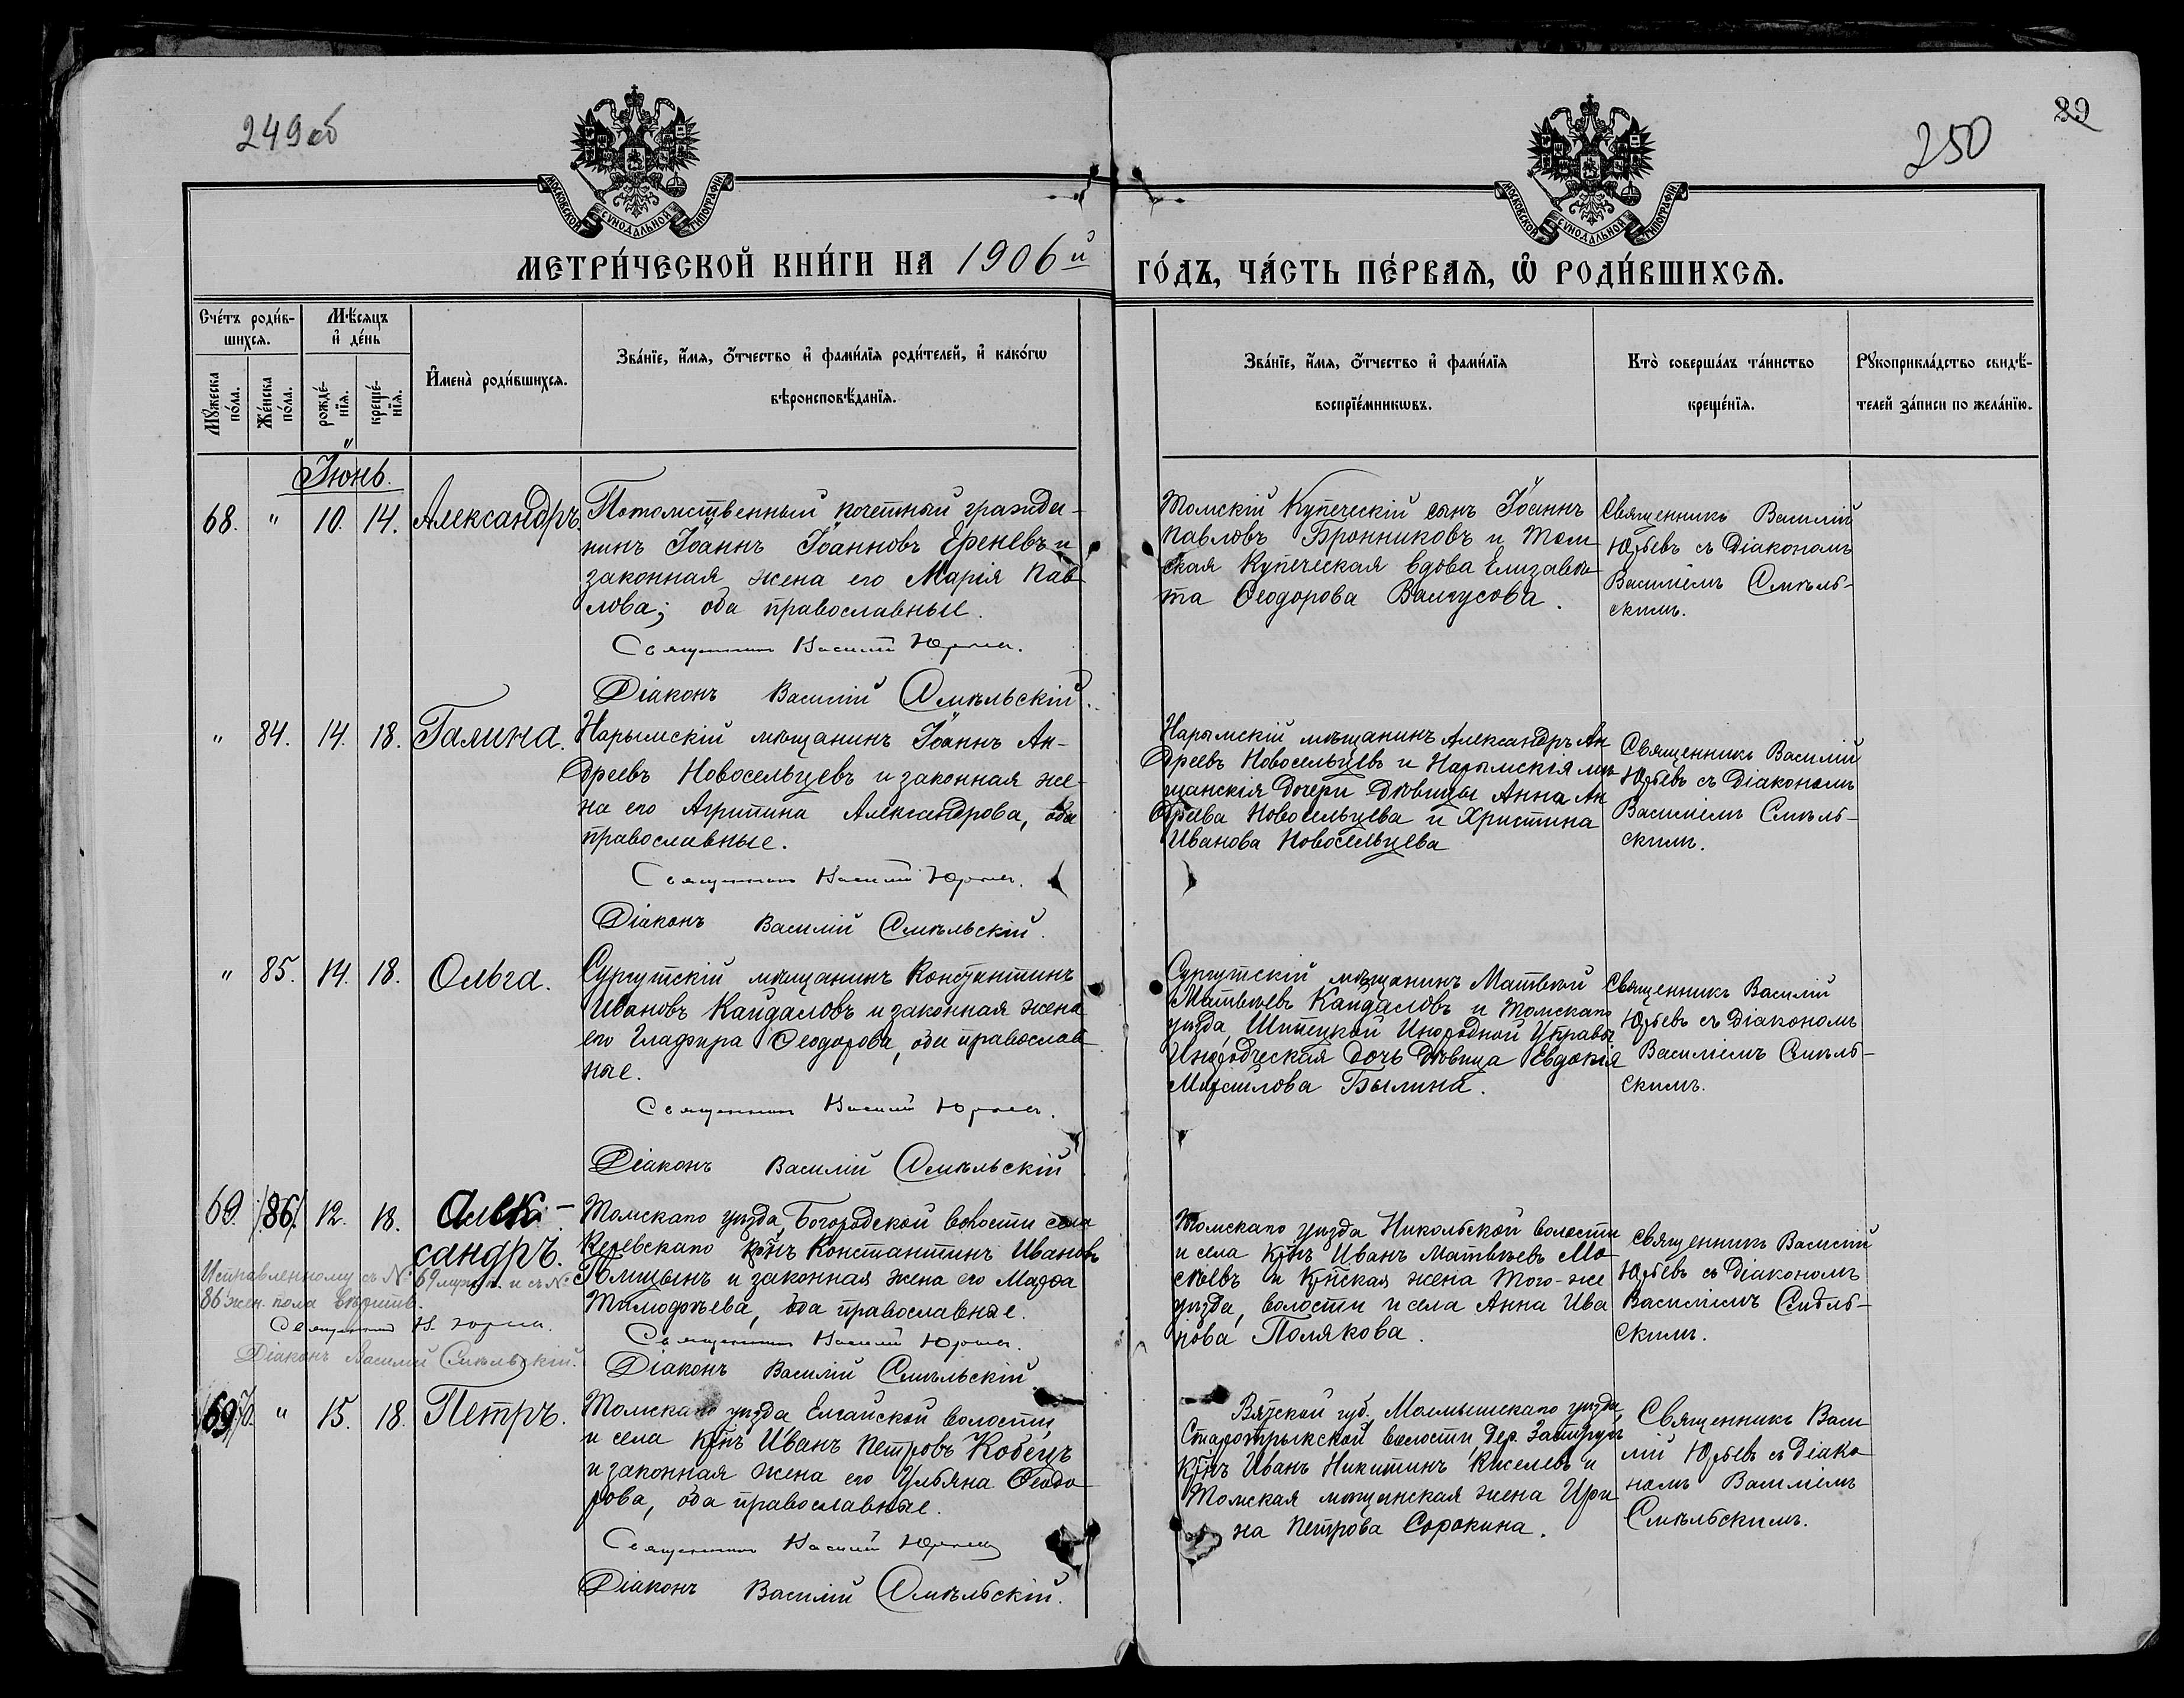 249об
250
29
МОСКОВСКОЙ СѴНОДАЛЬНОЙ ТИПОГРАФІИ
МОСКОВСКОЙ СѴНОДАЛЬНОЙ ТИПОГРАФІИ
МЕТРИ́ЧЕСКОЙ КНИ́ГИ НА 1906й
ГО́ДЪ, ЧА́СТЬ ПЕ́РВАѦ, Ѡ҆ РОДИ́ВШИХСѦ.
Сче́тъ роди́в-
шихсѧ.
Мѣ́сѧцъ
и҆ де́нь
Мꙋжеска
по́ла.
Же́нска
по́ла.
рожде́-
нїѧ.
креще́-
нїѧ.
И҆мена̀ роди́вшихсѧ.
Зва́нїе, и҆́мѧ, ѻ҆́тчество и҆ фами́лїѧ роди́телей, и҆ како́гѡ
вѣроисповѣ́данїѧ.
Зва́нїе, и҆́мѧ, ѻ҆́тчество и҆ фами́лїѧ
воспрїе́мникѡвъ.
Кто̀ соверша́лъ та́инство
креще́нїѧ.
Рꙋкоприкла́дство свидѣ́-
телей за́писи по жела́нїю.
Іюнь.
68. " 10. 14. Александръ
Потомственный почетный гражда-
нинъ Іоаннъ Іоанновъ Ереневъ и
законная жена его Марія Пав-
лова; оба православные.
Священникъ Василій Юрьевъ.
Діаконъ Василій Смѣльскій.
Томскій Купеческій сынъ Іоаннъ
Павловъ Бронниковъ и Том
ская Купеческая вдова Елизаве
та Ѳеодорова Валгусова.
Священникъ Василій
Юрьевъ съ Діакономъ
Василіемъ Смѣль-
скимъ.
" 84. 14. 18. Галина.
Нарымскій мѣщанинъ Іоаннъ Ан-
дреевъ Новосельцевъ и законная же-
на его Агрипина Александрова, оба
православные.
Священникъ Василій Юрьевъ.
Діаконъ Василій Смѣльскій.
Нарымскій мѣщанинъ Александръ Ан
дреевъ Новосельцевъ и Нарымскія мѣ-
щанскія дочери дѣвицы Анна Ан
дреева Новосельцева и Христина
Иванова Новосельцева
Священникъ Василій
Юрьевъ съ Діакономъ
Василіемъ Смѣль-
скимъ.
" 85. 14. 18. Ольга.
Сургутскій мѣщанинъ Константинъ
Ивановъ Кайдаловъ и законная жена
его Глафира Ѳеодорова, оба православ-
ные.
Священникъ Василій Юрьевъ.
Діаконъ Василій Смѣльскій
Сургутскій мѣщанинъ Матвѣй
Матвѣевъ Кайдаловъ и Томскаго
уѣзда, Шепецкой Инородной Управы
Инородческая дочь дѣвица Евдокія
Былина.
Священникъ Василій
Юрьевъ съ Діакономъ
Василіемъ Смѣль-
скимъ.
69. /86/ 12. 18. Алек-
сандръ.
Томскаго уѣзда, Богородской волости села
Керевскаго крнъ Константинъ Ивановъ
и законная жена его Марѳа
Тимоѳеева, оба православные.
Священникъ Василій Юрьевъ.
Діаконъ Василій Смѣльскій
Исправленному съ № 69 муж. п. и съ №
86 жен. пола вѣрить.
Священникъ В. Юрьевъ.
Діаконъ Василій Смѣльскій.
Томскаго уѣзда Никольской волости
и села крнъ Иванъ Матвѣевъ Мо-
скѣевъ и крнская жена того-же
уѣзда, волости и села Анна Ива
нова Полякова.
Священникъ Василій
Юрьевъ съ Діакономъ
Василіемъ Смѣль-
скимъ.
/69/ 70. " 15. 18. Петръ.
Томскаго уѣзда Елгайской волости,
и села крнъ Иванъ Петровъ Кобецъ
и законная жена его Ульяна Ѳеодо-
рова, оба православные.
Священникъ Василій Юрьевъ
Діаконъ Василій Смѣльскій.
Вятской губ. Малмышскаго уѣзда,
Старотрыкской волости, дер.
крнъ Иванъ Никитинъ Киселевъ и
Томская мѣщанская жена Ири
на Петрова Сорокина.
Священникъ Васи
лій Юрьевъ съ Діако
номъ Василіемъ
Смѣльскимъ.